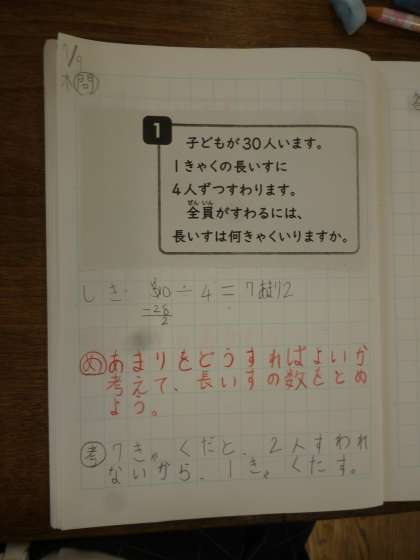 7/9
木 問
1
子どもが30人います。
1きゃくの長いすに
4人ずつすわります。
ぜんいん
全員がすわるには、
長いすは何きゃくいりますか。
しき 30÷4=7あまり2
-28
2
め あまりをどうすればよいか
考えて、長いすの数をもとめ
よう。
考 7きゃくだと、2人すわれ
ないから、1きゃくたす。